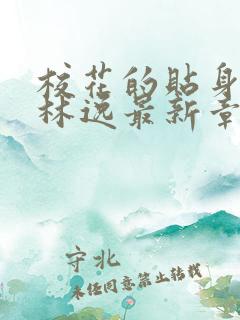 校花的贴身
林逸最新章
守北
未经同意禁止转载